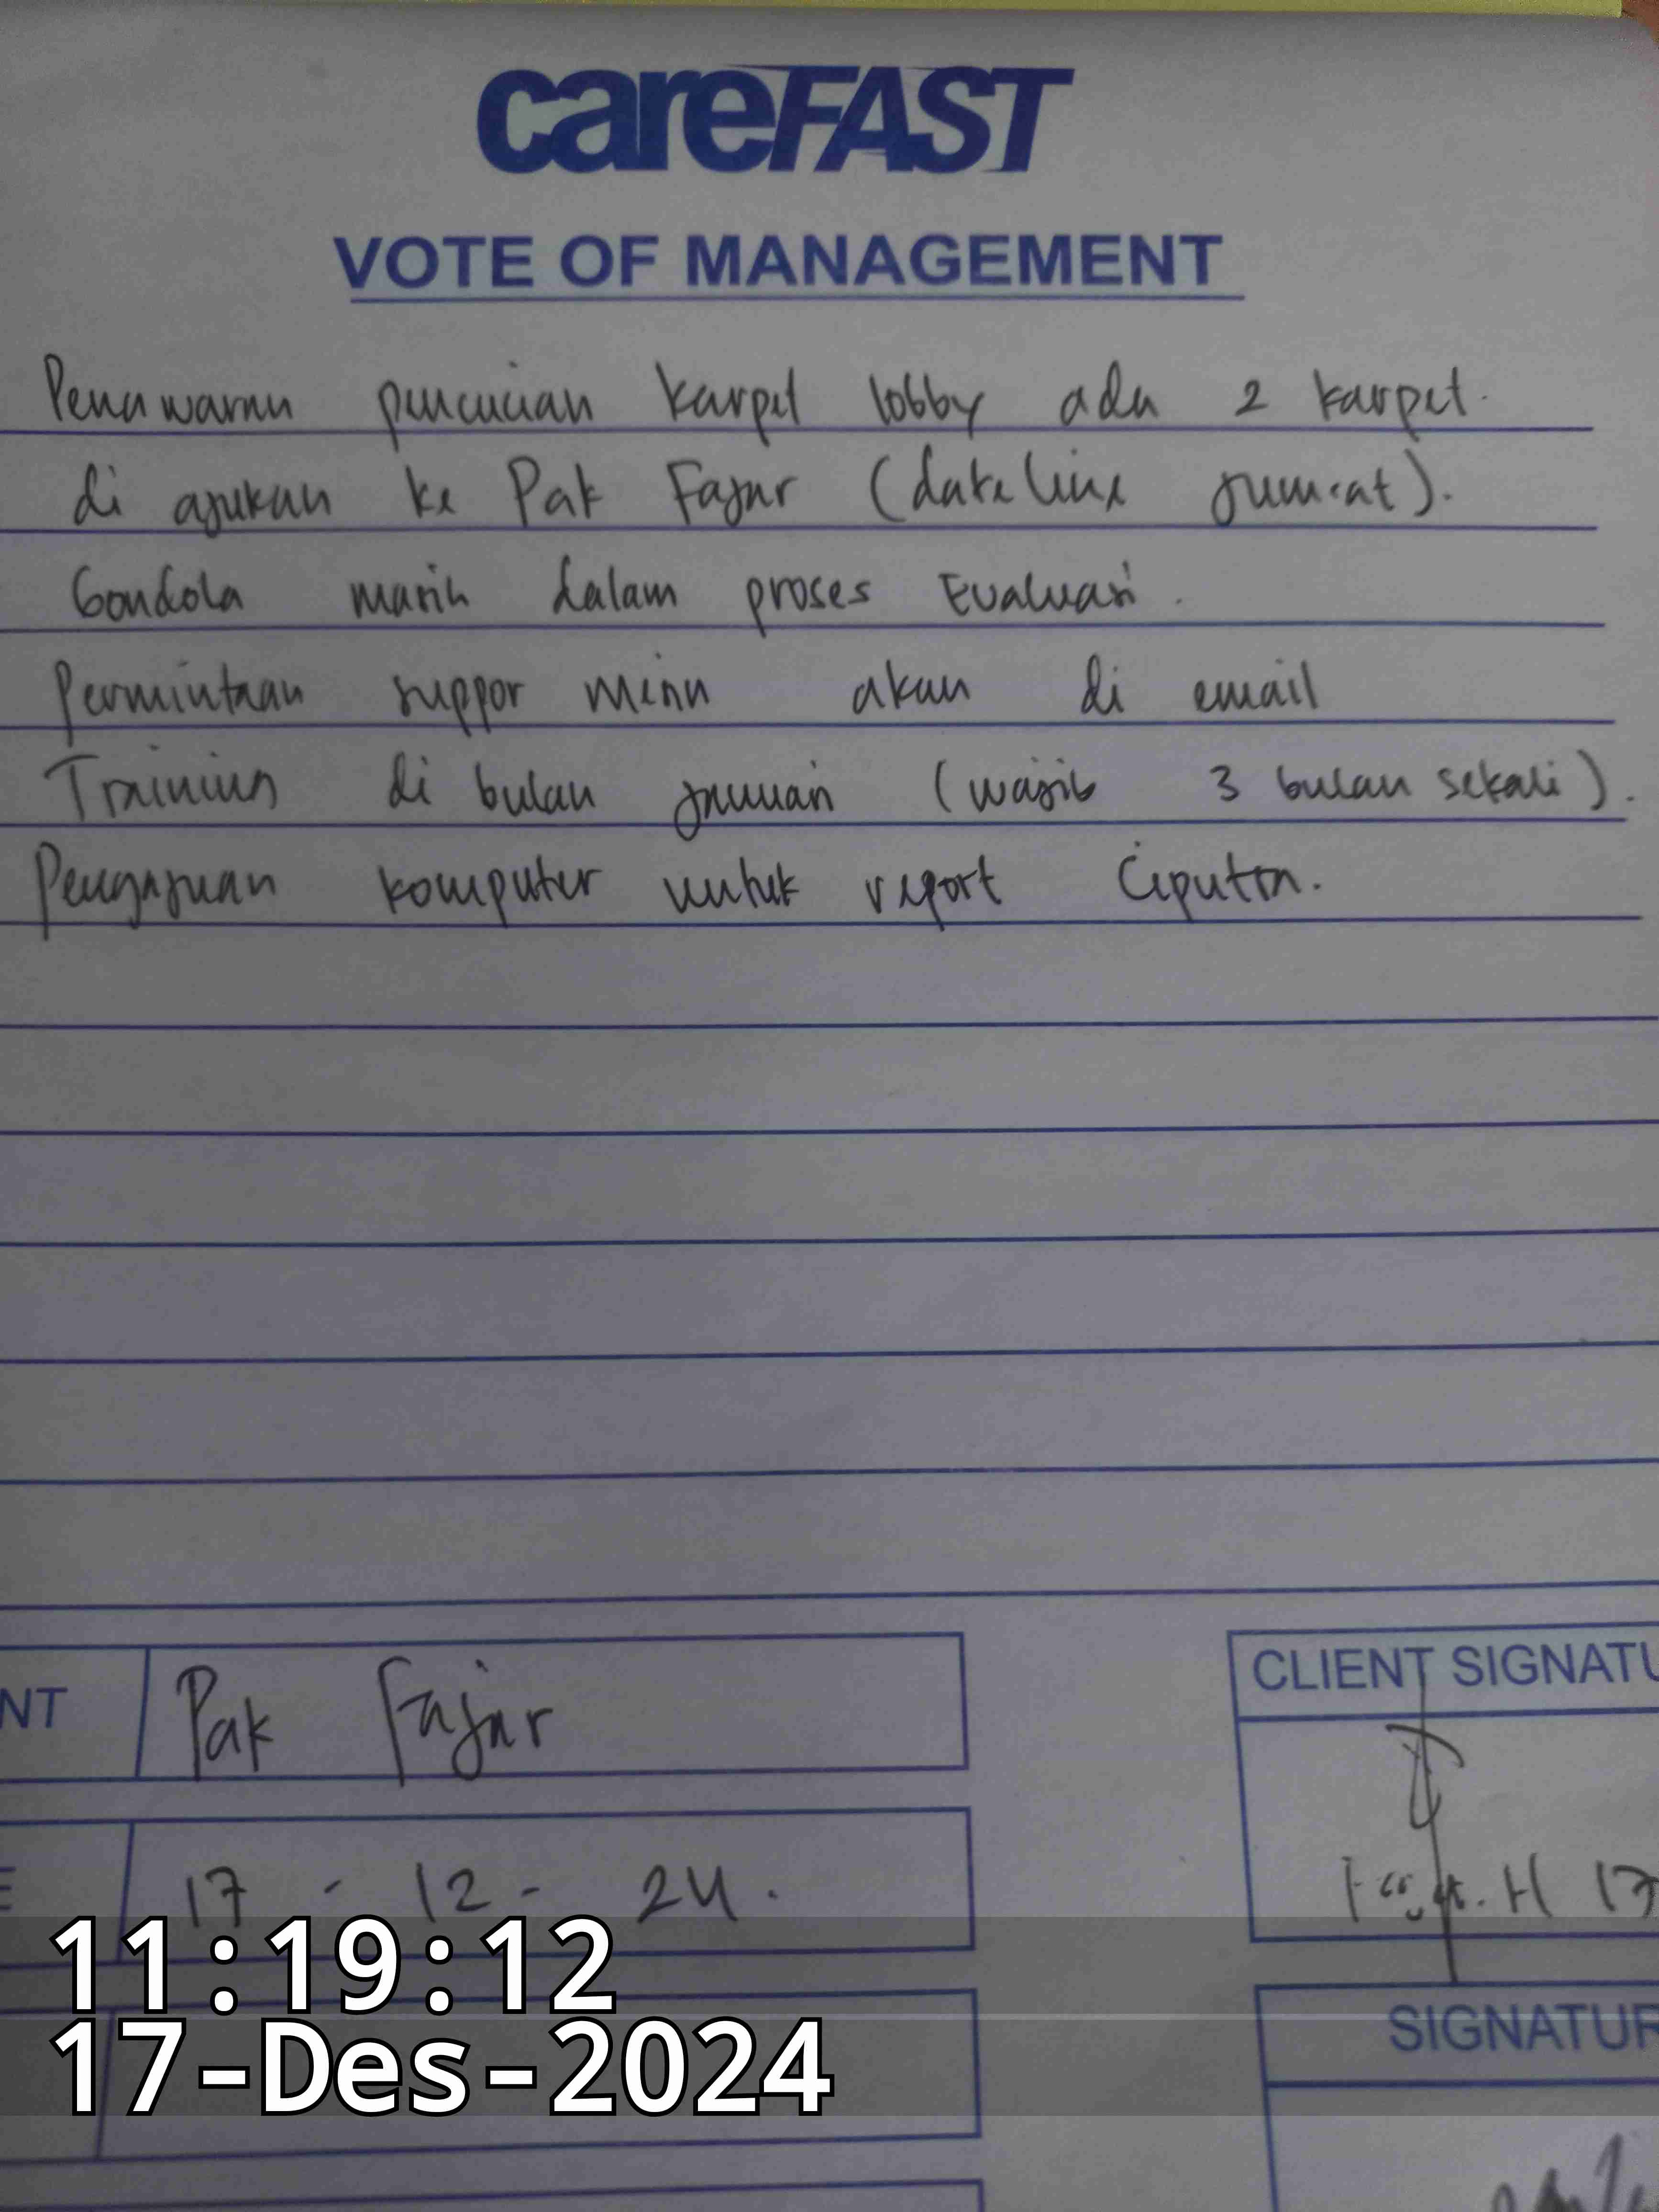 careFAST
VOTE OF MANAGEMENT
Penawaran pencucian karpet lobby ada 2 karpet.
di ajukan ke Pak Fajar (dateline jum'at).
Gondola masih dalam proses Evaluasi.
Permintaan suppor menu akan di email
Training di bulan januari (wajib 3 bulan sekali).
Pengajuan komputer untuk report Ciputra.
NT Pak Fajar
CLIENT SIGNATU
E 17 - 12 - 24.
H 17
11:19:12
SIGNATUR
17-Des-2024